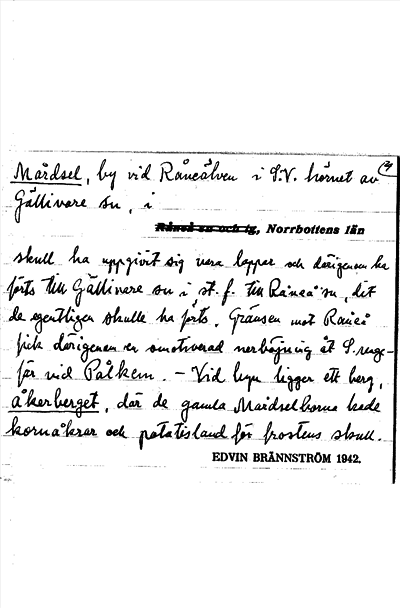 2)
Mårdsel, by vid Råneälven i S.V. hörnet av
Gällivare sn, i
Råneå sn och tg, Norrbottens län
skull ha uppgivit sig vara lappar och därigenom ha
förts till Gällivare sn i st. f. till Råneå sn, dit
de egentligen skulle ha förts. Gränsen mot Råneå
fick därigenom en omotiverad nerböjning åt S. unge-
fär vid Pålkem. – Vid byn ligger ett berg,
åkerberget, där de gamla Mårdselborna hade
kornåkrar och potatisland för frostens skull.
EDVIN BRÄNNSTRÖM 1942.